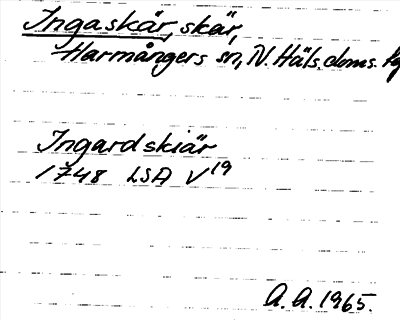 Ingaskär, skär,
Harmångers sn, N. Häls. doms.
Ingardskiär
1748 LSA V19
A. A. 1965.